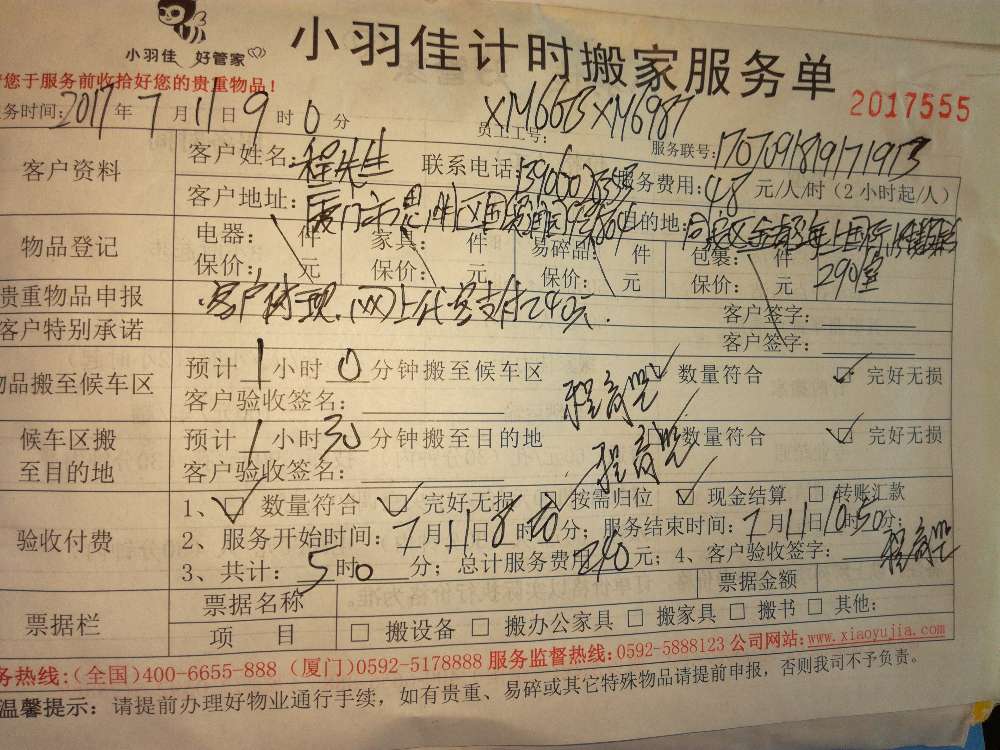 小羽佳 好管家
小羽佳计时搬家服务单
您于服务前收拾好您的贵重物品！
2017555
务时间：2017年7月11日9时0分
员工工号：XM6613 XM6987
服务联号：1707091819171913
客户资料
客户姓名：程先生
联系电话：
服务费用：48元/人/时（2小时起/人）
客户地址：厦门市思明区
目的地：同安区
290室
物品登记
电器： 件 家具： 件 易碎品： 件 包裹： 件
保价： 元 保价： 元 保价： 元 保价： 元
贵重物品申报
客户 现，网上代客支付240元．
客户签字：
客户特别承诺
客户签字：
物品搬至候车区
预计1小时0分钟搬至候车区
数量符合 完好无损
客户验收签名：
候车区搬至目的地
预计1小时30分钟搬至目的地
数量符合 完好无损
客户验收签名：
验收付费
1、 数量符合 完好无损 按需归位 现金结算 转账汇款
2、服务开始时间：7月11日8时20分；服务结束时间：7月11日10时50分；
3、共计：5时0分；总计服务费用240元；4、客户验收签字：
票据栏
票据名称
票据金额
项 目
搬设备 搬办公家具 搬家具 搬书 其他：
务热线：（全国）400-6655-888（厦门）0592-5178888 服务监督热线：0592-5888123 公司网站：www.xiaoyujia.com
温馨提示：请提前办理好物业通行手续，如有贵重、易碎或其它特殊物品请提前申报，否则我司不予负责。